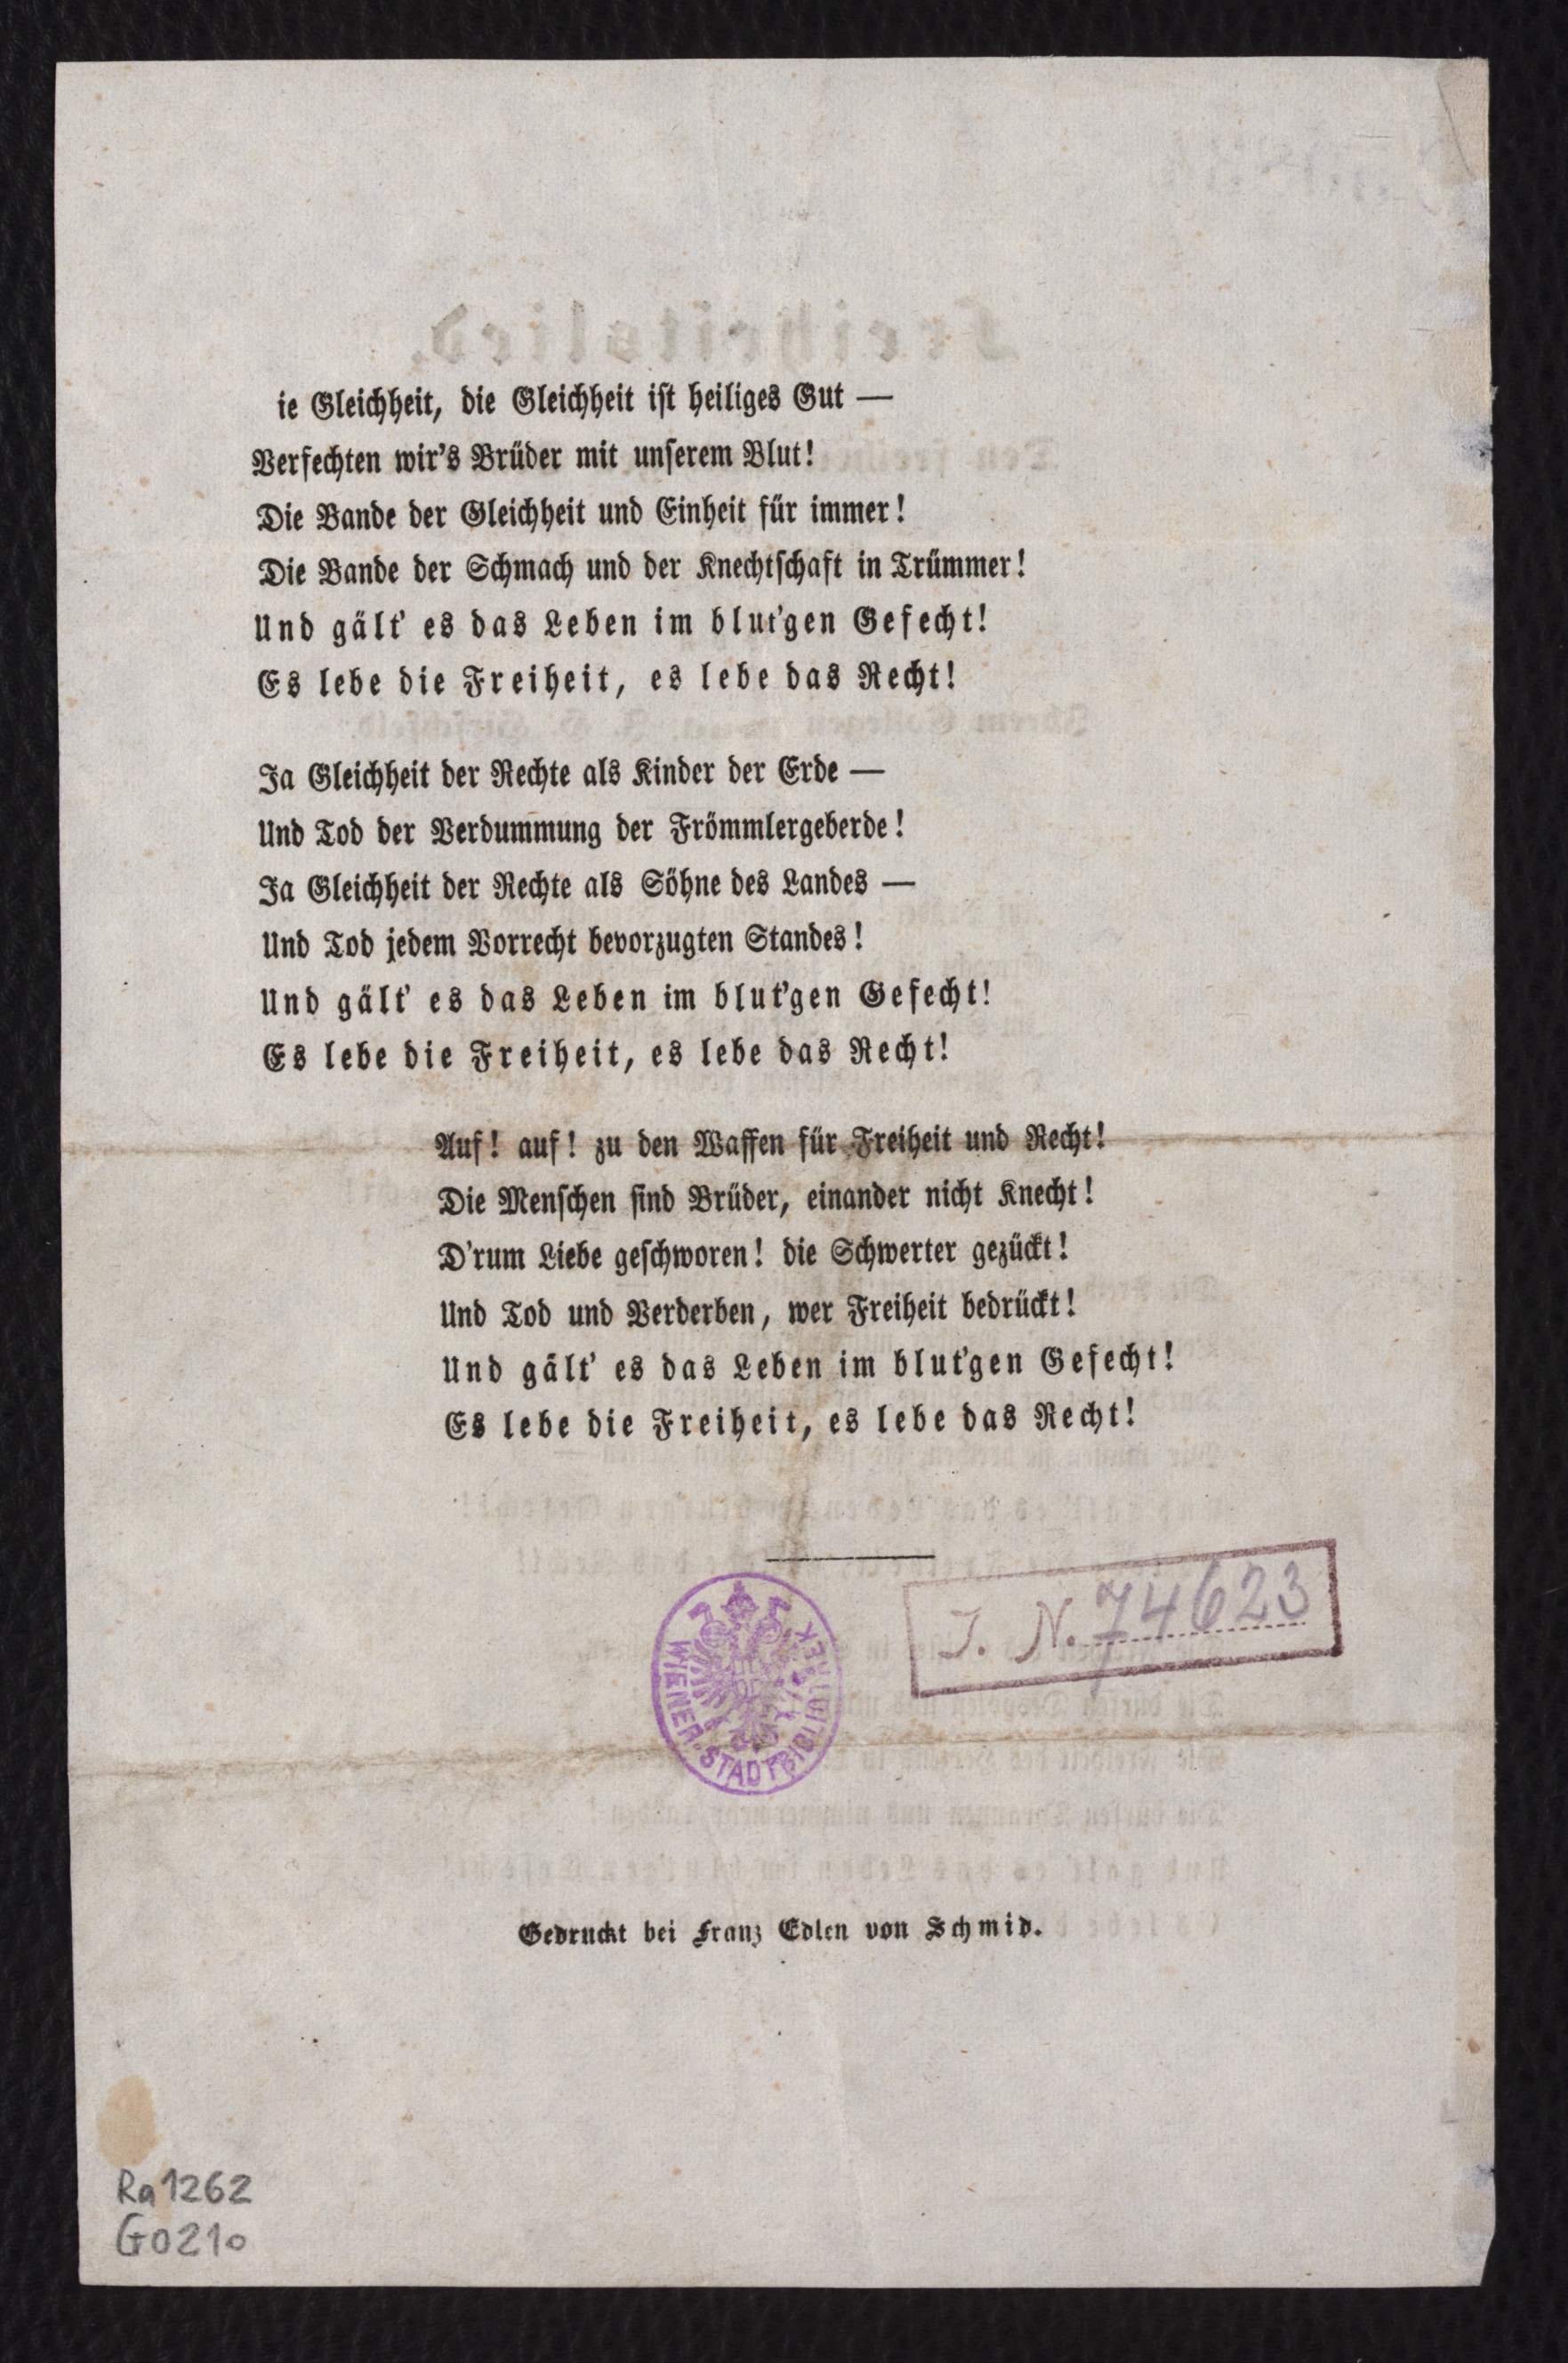 ie Gleichheit, die Gleichheit ist heiliges Gut —
Verfechten wir's Brüder mit unserem Blut!
Die Bande der Gleichheit und Einheit für immer!
Die Bande der Schmach und der Knechtschaft in Trümmer!
Und gält' es das Leben im blut'gen Gefecht!
Es lebe die Freiheit, es lebe das Recht!
Ja Gleichheit der Rechte als Kinder der Erde —
Und Tod der Verdummung der Frömmlergeberde!
Ja Gleichheit der Rechte als Söhne des Landes —
Und Tod jedem Vorrecht bevorzugten Standes!
Und gält' es das Leben im blut'gen Gefecht!
Es lebe die Freiheit, es lebe das Recht!
Auf! auf! zu den Waffen für Freiheit und Recht!
Die Menschen sind Brüder, einander nicht Knecht!
D'rum Liebe geschworen! die Schwerter gezückt!
Und Tod und Verderben, wer Freiheit bedrückt!
Und gält' es das Leben im blut'gen Gefecht!
Es lebe die Freiheit, es lebe das Recht!
J. N. 74623
WIENER STADTBIBLIOTHEK
Gedruckt bei Franz Edlen von Schmid.
Ra 1262
G0210